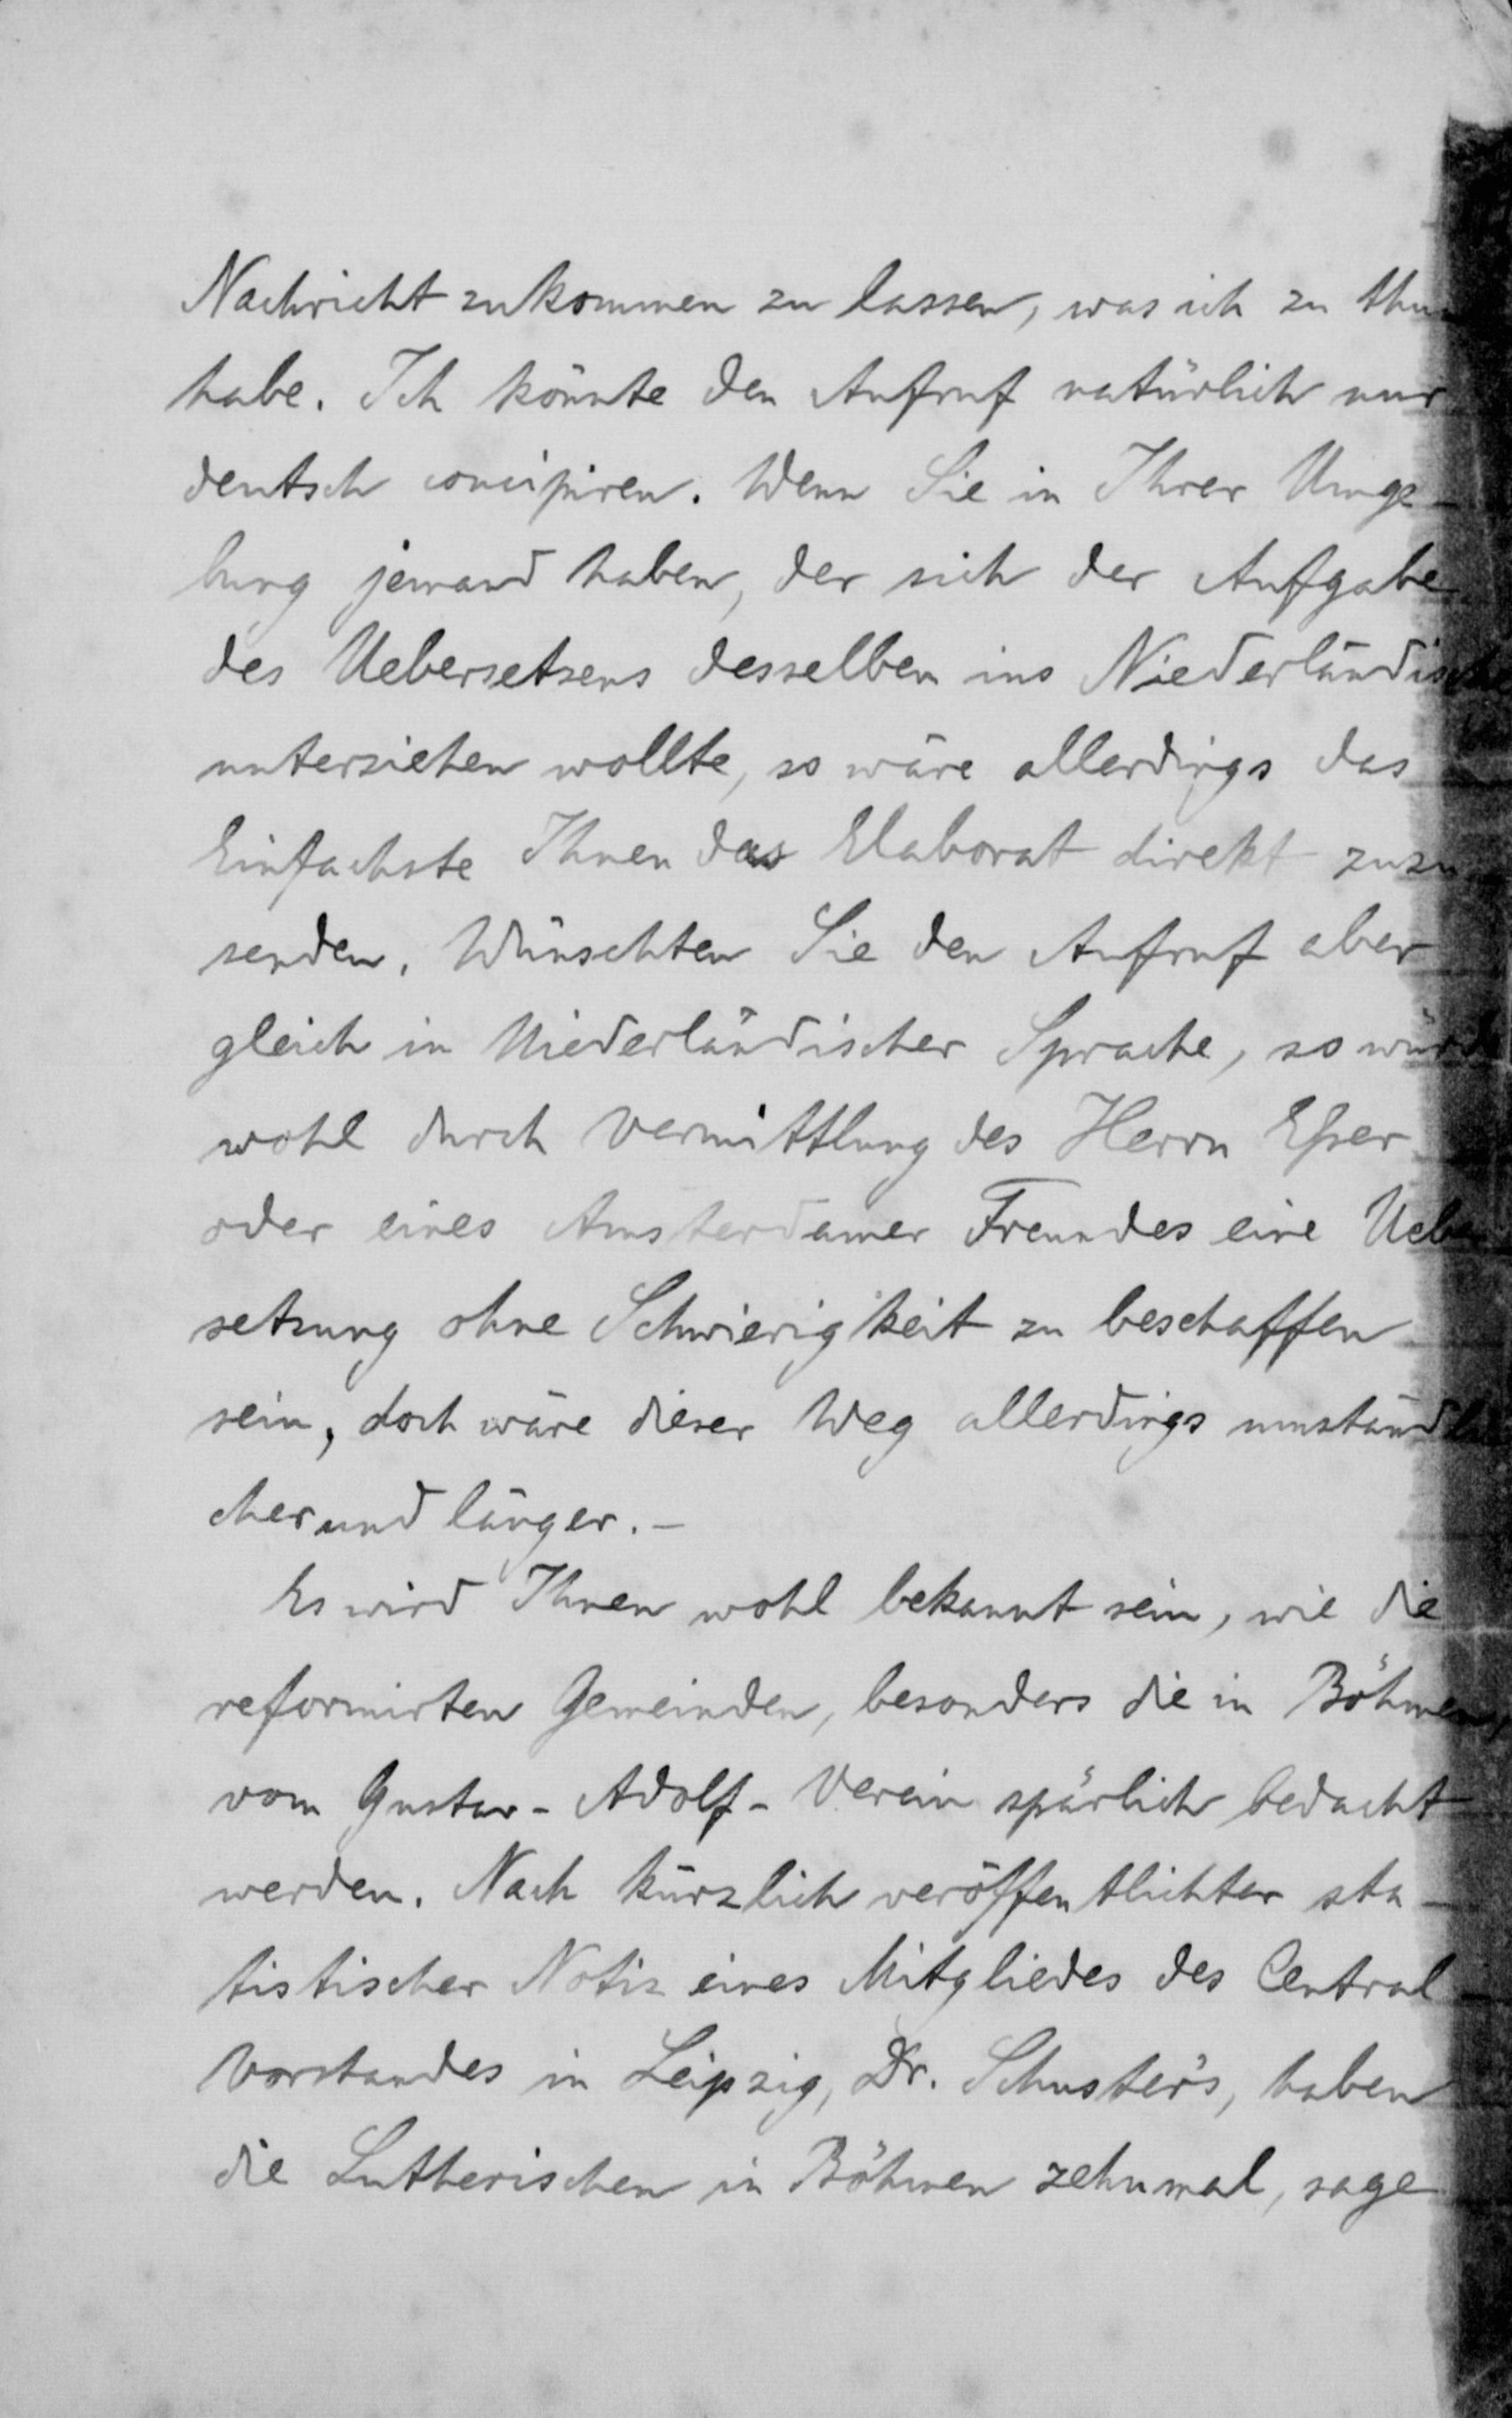 Nachricht zukommen zu lassen, was ich zu thun
habe. Ich könnte den Aufruf natürlich nur
deutsch concipiren. Wenn Sie in Ihrer Umge-
bung jemand haben, der sich der Aufgabe
des Uebersetzens desselben ins Niederländische
unterziehen wollte, so wäre allerdings das
Einfachste Ihnen das Elaborat direkt zuzu
senden. Wünschten Sie den Aufruf aber
gleich in Niederländischer Sprache, so würde
wohl durch Vermittlung des Herrn Esser
oder eines Amsterdamer Freundes eine Ueber
setzung ohne Schwierigkeit zu beschaffen
sein, doch wäre dieser Weg allerdings umständli
cher und länger. –
Es wird Ihnen wohl bekannt sein, wie die
reformirten Gemeinden, besonders die in Böhmen,
vom Gustav-Adolf-Verein spärlich bedacht
werden. Nach kürzlich veröffentlichter sta-
tistischer Notiz eines Mitgliedes des Central
vorstandes in Leipzig, Dr. Schuster's, haben
die Lutherischen in Böhmen zehnmal, sage